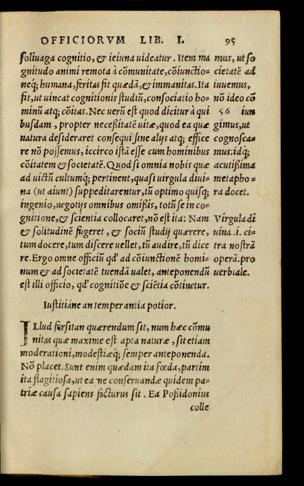 OFFICIORVM LIB. I. 95
soliuaga cognitio, & ieiuna uideatur. Item ma
gnitudo animi remota à cōmunitate, cōiunctio-
neq; humana, feritas fit quædā, & immanitas. Ita
fit, ut uincat cognitionis studiū, consociatio ho-
minū atq; cōitas. Nec uerū est quod dicitur à qui
busdam, propter necessitatē uitæ, quod ea quæ
natura desideraret consequi sine alijs atq; efficere
re nō possemus, iccirco istā esse cum hominibus
cōitatem & societatē. Quod si omnia nobis quæ
ad uictū cultumq; pertinent, quasi uirgula diui-
na (ut aiunt) suppeditarentur, tū optimo quisq;
ingenio, negotijs omnibus omißis, totū se in co-
gnitione, & scientia collocaret, nō est ita: Nam
& solitudinē fugeret, & sociū studij quærere,
tum docere, tum discere uellet, tū audire, tū dice
re. Ergo omne officiū qd' ad cōiunctionē homi-
num & ad societatē tuendā ualet, anteponendū
est illi officio, qd' cognitiōe & sciētia cōtinetur.
Iustitiāne an temperantia potior.
ILlud fürsitan quærendum sit, num hæc cōmu
nitas quæ maxime est apta naturæ, sit etiam
moderationi, modestiæq; semper anteponenda.
Nō placet. Sunt enim quædam ita fœda, partim
ita flagitiosa, ut ea ne conseruandæ quidem pa-
triæ causa sapiens facturus sit. Ea Poßidonius
colle
mus, ut so
cietatē ad
iuuemus,
nō ideo cō
56 iun
gimus, ut
cognosca-
mus. idq;
acutißima
metapho-
ra docet.
Virgula di
uina .i. ci-
tra nostrā
operā. pro
uerbiale.